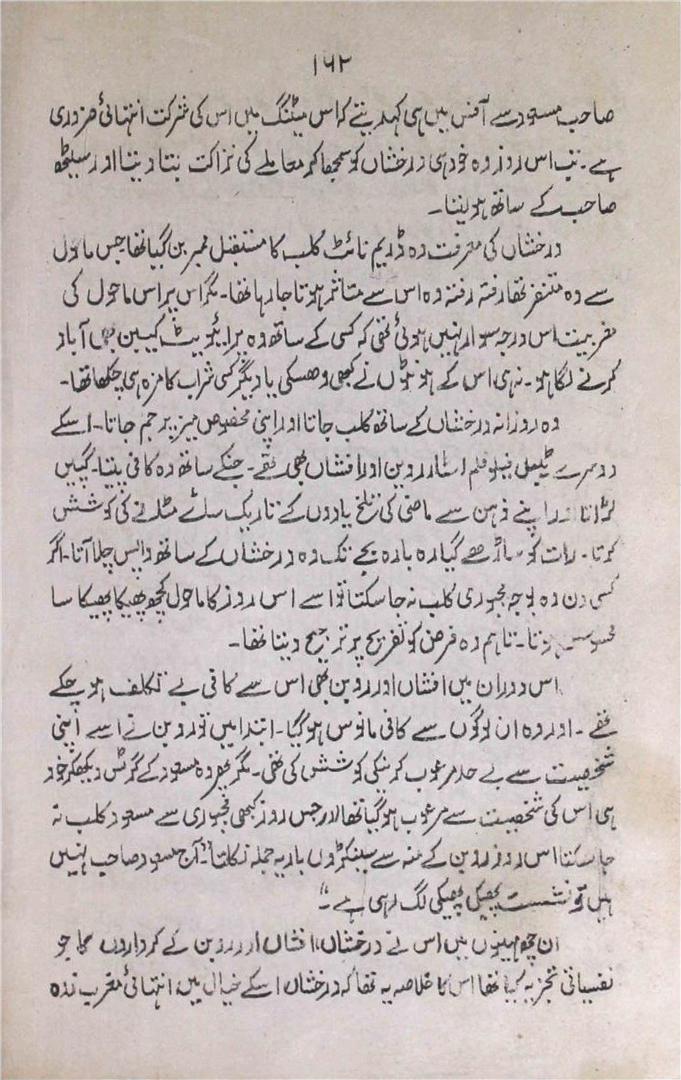 ۱۶۲
صاحب مسعود سے آفس میں ہی کہہ دیتے کہ اس میٹنگ میں اس کی شرکت انتہائی ضروری
ہے۔ تب اس روز وہ خود ہی درخشاں کو سمجھا کر معاملے کی نزاکت بتا دیتا اور سیٹھ
صاحب کے ساتھ ہو لیتا۔
درخشاں کی معرفت وہ ڈریم نائٹ کلب کا مستقبل ممبر بن گیا تھا۔ جس ماحول
سے وہ متنفر تھا رفتہ رفتہ وہ اس سے متاثر ہوتا جا رہا تھا۔ مگر اس پر اس ماحول کی
مغربیت اس درجہ سوار نہیں ہوئی تھی کہ کسی کے ساتھ وہ پرائیویٹ کیبین بھی آباد
کرنے لگا ہو۔ نہ ہی اس کے ہونٹوں نے کبھی وہسکی یا دیگر کسی شراب کا مزہ ہی چکھا تھا۔
وہ روزانہ درخشاں کے ساتھ کلب جاتا اور اپنی مخصوص میز پر جم جاتا۔ اسکے
دوسرے ٹیبل فیلو فلم اسٹار روبن اور افشاں بھی تھے۔ جنکے ساتھ وہ کافی پیتا۔ گپیں
لڑاتا اور اپنے ذہن سے ماضی کی تلخ یادوں کے تاریک سائے مٹانے کی کوشش
کرتا۔ رات کو ساڑھے گیارہ بارہ بجے تک وہ درخشاں کے ساتھ واپس چلا آتا۔ اگر
کسی دن وہ بوجہ مجبوری کلب نہ جا سکتا تو اسے اس روز کا ماحول کچھ پھیکا پھیکا سا
محسوس ہوتا۔ تاہم وہ فرض کو تفریح پر ترجیح دیتا تھا۔
اس دوران میں افشاں اور روبن بھی اس سے کافی بے تکلف ہو چکے
تھے۔ اور وہ ان لوگوں سے کافی مانوس ہو گیا۔ ابتدا میں تو روبن نے اسے اپنی
شخصیت سے بے حد مرعوب کرنیکی کوشش کی تھی۔ مگر پھر وہ مسعود کے گرٹس دیکھکر خود
ہی اس کی شخصیت سے مرعوب ہو گیا تھا اور جس روز کبھی مجبوری سے مسعود کلب نہ
جا سکتا اس روز روبن کے منہ سے سینکڑوں بار یہ جملہ نکلتا: "آج مسعود صاحب نہیں
ہیں تو نشست پھیکی پھیکی لگ رہی ہے۔"
ان چھ مہینوں میں اس نے درخشاں، افشاں اور روبن کے کرداروں کا جو
نفسیاتی تجزیہ کیا تھا اس کا خلاصہ یہ تھا کہ درخشاں اسکے خیال میں انتہائی مغرب زدہ